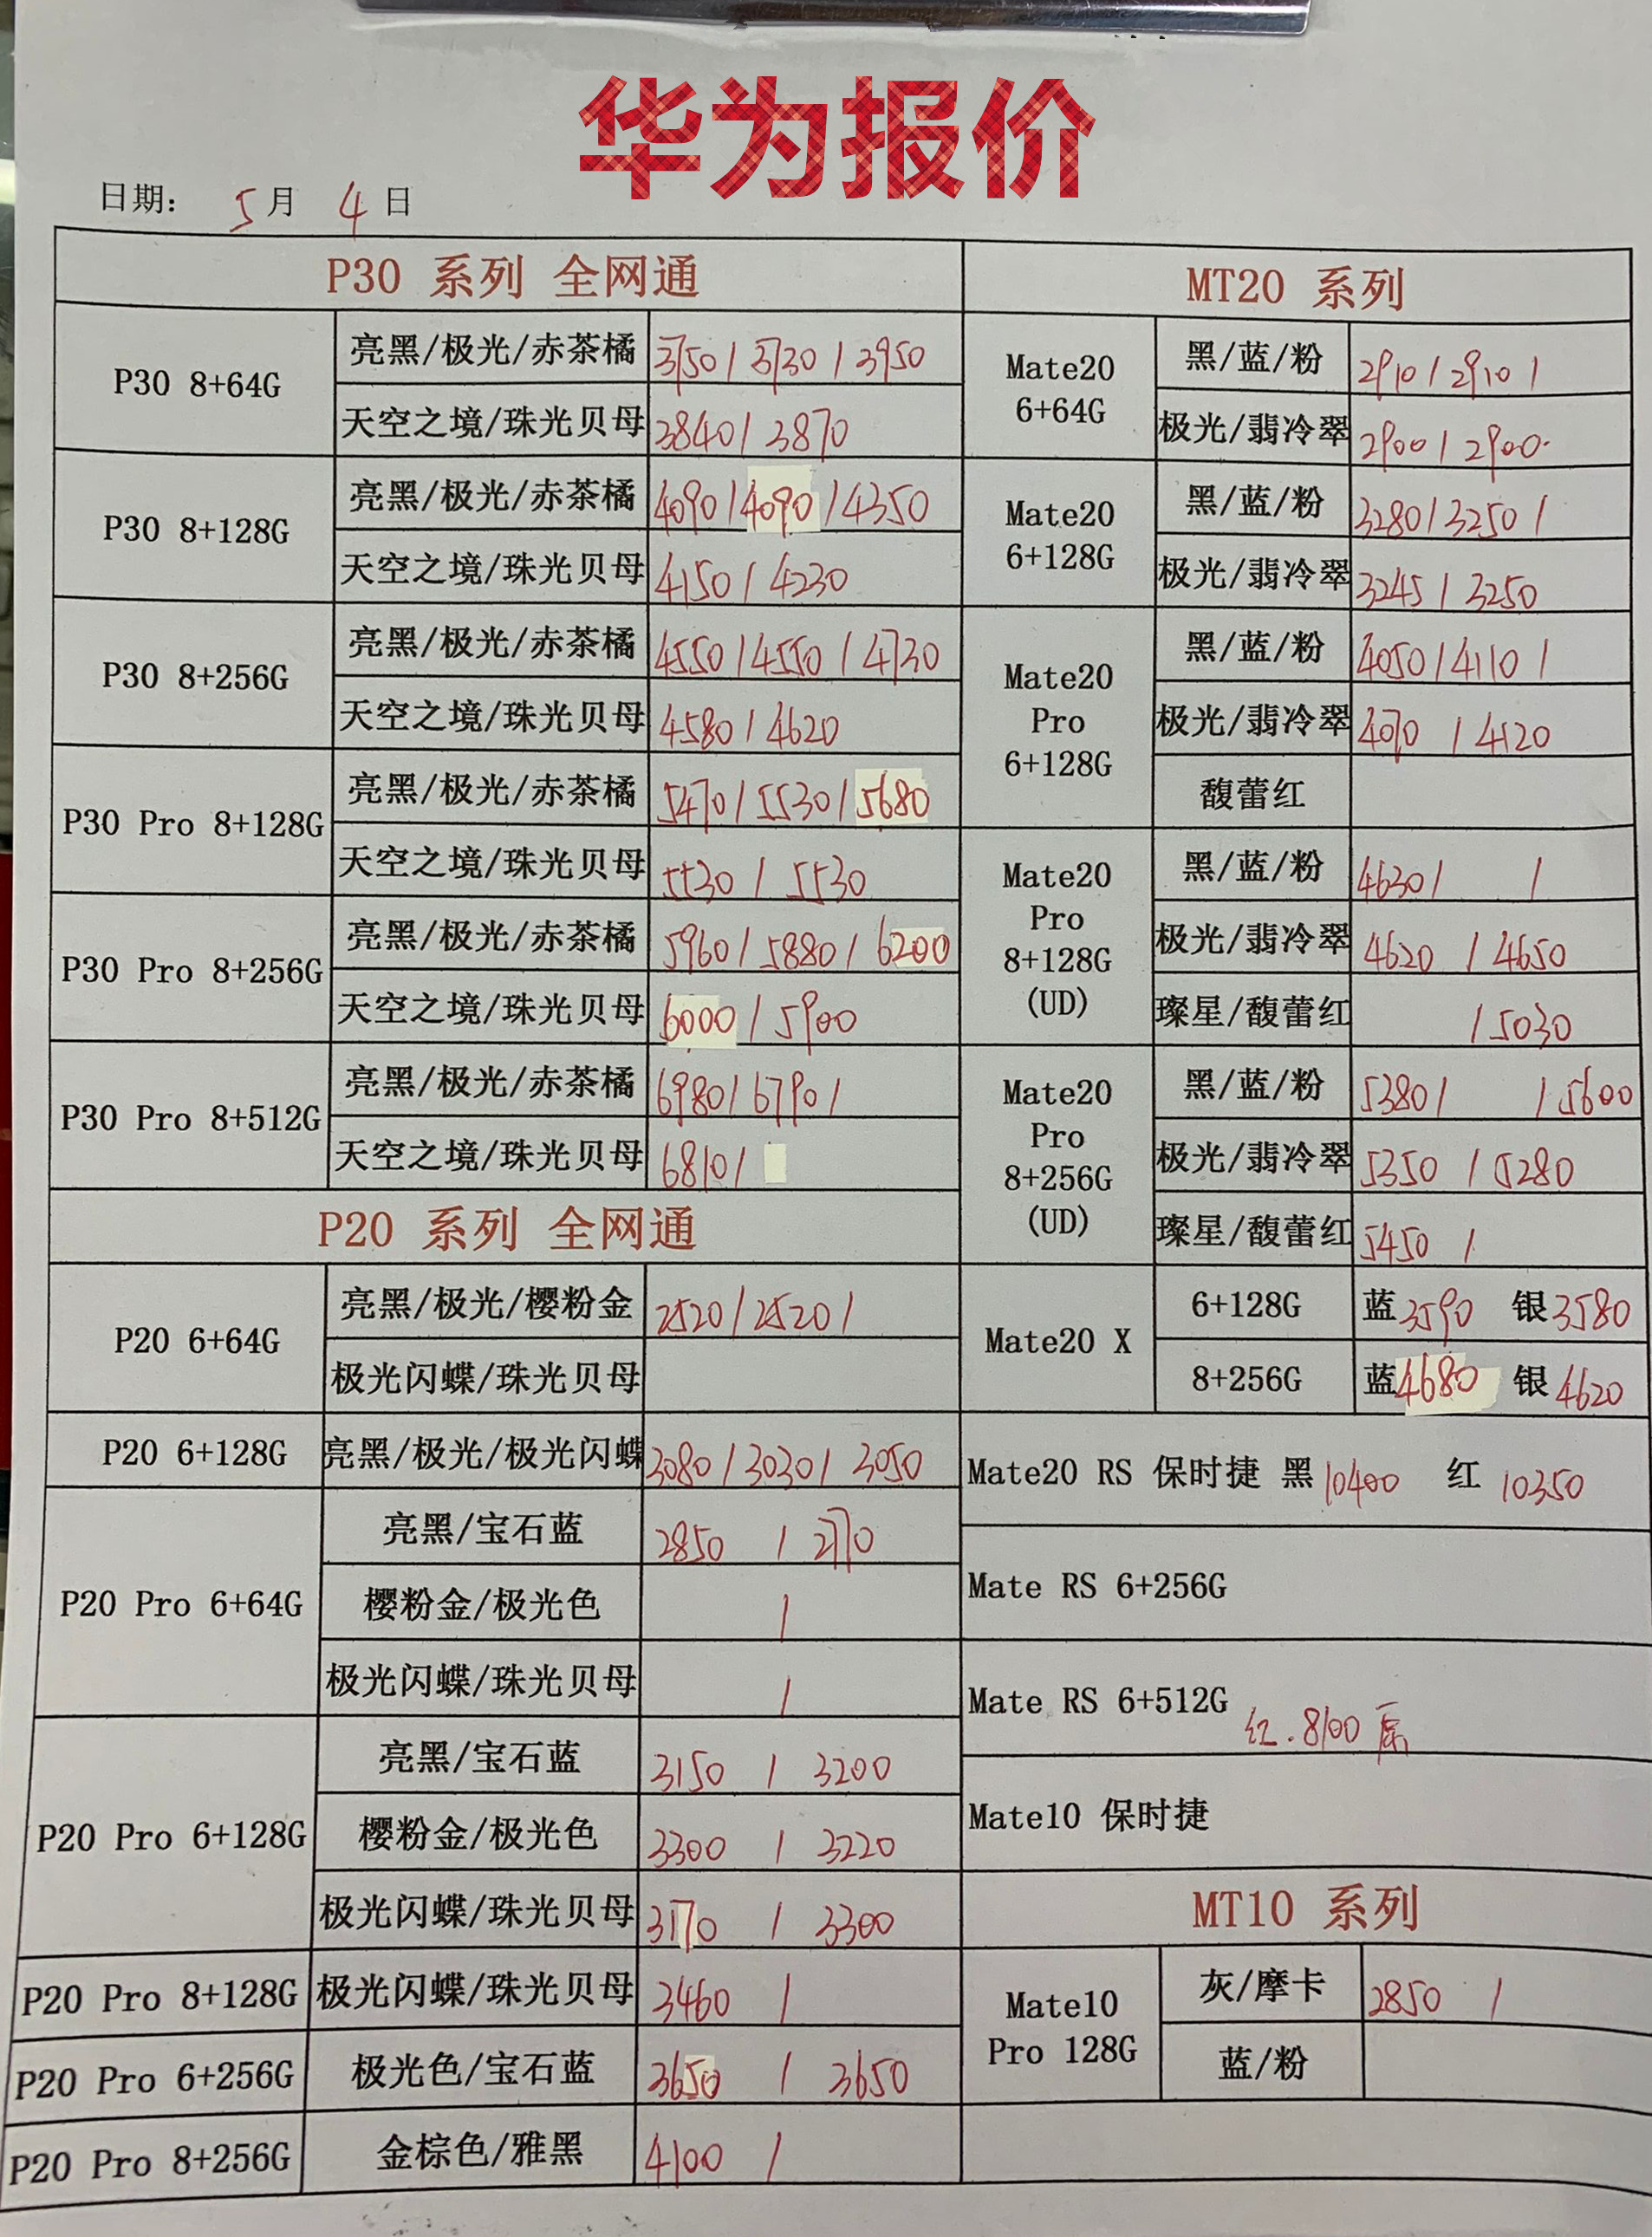 华为报价
日期： 5月 4日
P30 系列 全网通
P30 8+64G
亮黑/极光/赤茶橘 3750/3730/3950
天空之境/珠光贝母 3840/3870
P30 8+128G
亮黑/极光/赤茶橘 4090/4090/4350
天空之境/珠光贝母 4150/4230
P30 8+256G
亮黑/极光/赤茶橘 4550/4550/4730
天空之境/珠光贝母 4580/4620
P30 Pro 8+128G
亮黑/极光/赤茶橘 5470/5530/5680
天空之境/珠光贝母 5530/5530
P30 Pro 8+256G
亮黑/极光/赤茶橘 5960/5880/6200
天空之境/珠光贝母 6000/5900
P30 Pro 8+512G
亮黑/极光/赤茶橘 6980/6790/
天空之境/珠光贝母 6810/
P20 系列 全网通
P20 6+64G
亮黑/极光/樱粉金 2520/2520/
极光闪蝶/珠光贝母
P20 6+128G
亮黑/极光/极光闪蝶 3080/3030/3050
P20 Pro 6+64G
亮黑/宝石蓝 2850 / 2770
樱粉金/极光色 /
极光闪蝶/珠光贝母 /
P20 Pro 6+128G
亮黑/宝石蓝 3150 / 3200
樱粉金/极光色 3300 / 3220
极光闪蝶/珠光贝母 3170 / 3300
P20 Pro 8+128G
极光闪蝶/珠光贝母 3460 /
P20 Pro 6+256G
极光色/宝石蓝 3650 / 3650
P20 Pro 8+256G
金棕色/雅黑 4100 /
MT20 系列
Mate20
6+64G
黑/蓝/粉 2910/2910/
极光/翡冷翠 2900/2900
Mate20
6+128G
黑/蓝/粉 3280/3250/
极光/翡冷翠 3245/3250
Mate20
Pro
6+128G
黑/蓝/粉 4050/4110/
极光/翡冷翠 4070 / 4120
馥蕾红
Mate20
Pro
8+128G
(UD)
黑/蓝/粉 4630/ /
极光/翡冷翠 4620 / 4650
璨星/馥蕾红 /5030
Mate20
Pro
8+256G
(UD)
黑/蓝/粉 5380/ /5600
极光/翡冷翠 5350 / 5280
璨星/馥蕾红 5450 /
Mate20 X
6+128G 蓝3590 银3580
8+256G 蓝4680 银4620
Mate20 RS 保时捷 黑10400 红 10350
Mate RS 6+256G
Mate RS 6+512G 红.8100
Mate10 保时捷
MT10 系列
Mate10
Pro 128G
灰/摩卡 2850 /
蓝/粉